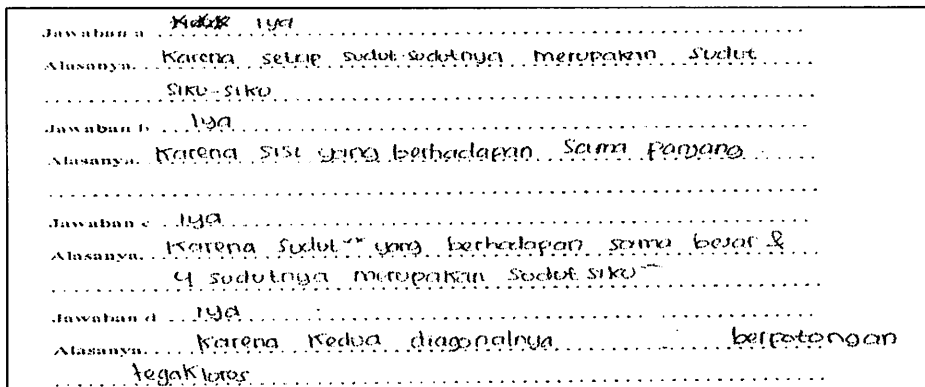 Jawaban a Iya
Alasanya. Karena setiap sudut-sudutnya merupakan sudut
siku-siku
Jawaban b Iya
Alasanya. Karena sisi yang berhadapan sama panjang
Jawaban c Iya
Alasanya. Karena sudut" yang berhadapan sama besar &
4 sudutnya merupakan sudut siku"
Jawaban d Iya
Alasanya. Karena kedua diagonalnya berpotongan
tegak lores